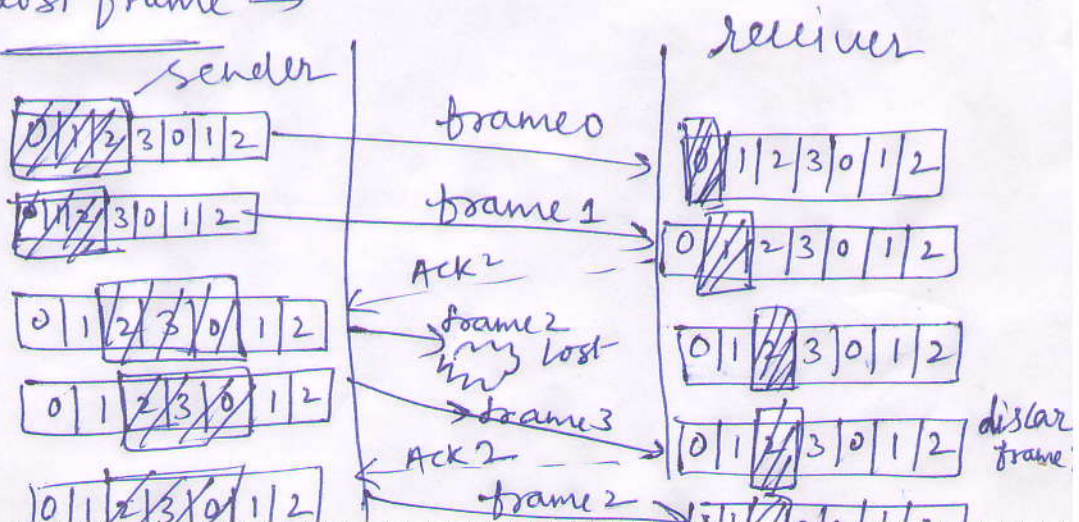 lost frame →
sender receiver
0 1 2 3 0 1 2 frame 0 0 1 2 3 0 1 2
0 1 2 3 0 1 2 frame 1 0 1 2 3 0 1 2
ACK 2
0 1 2 3 0 1 2 frame 2 lost 0 1 2 3 0 1 2
0 1 2 3 0 1 2 frame 3 0 1 2 3 0 1 2 discar
frame
ACK 2
0 1 2 3 0 1 2 frame 2